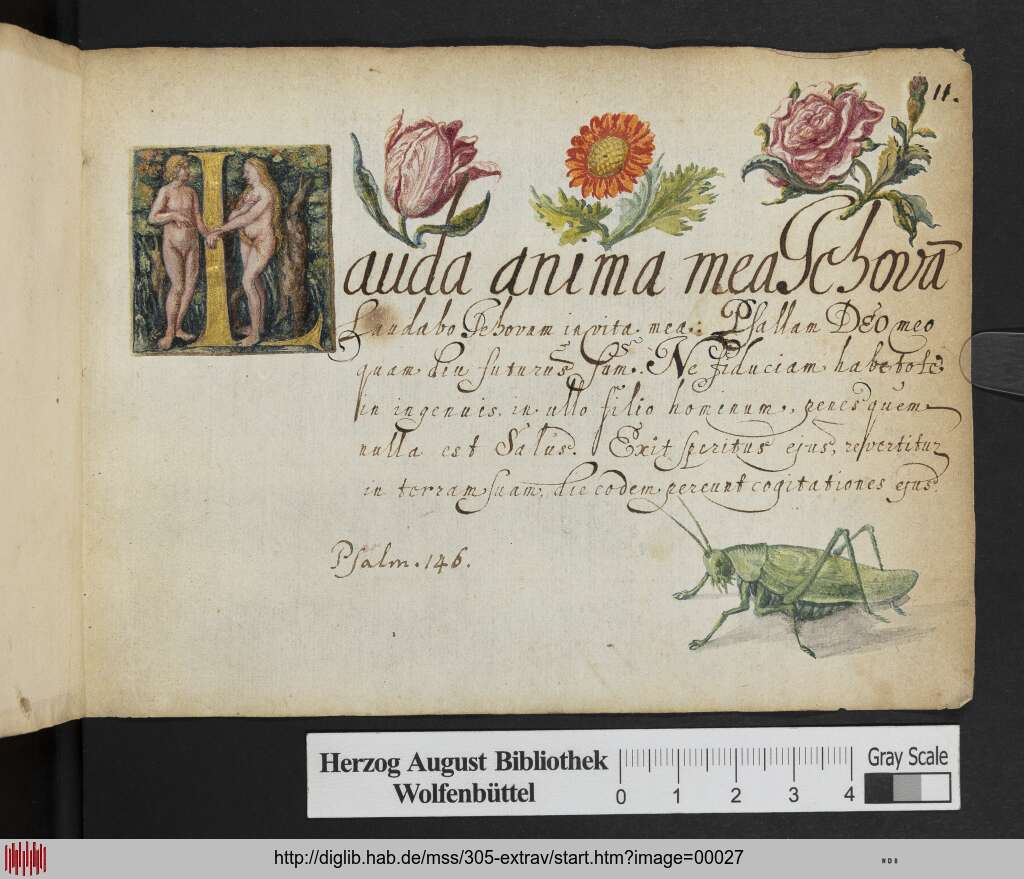 11.
Lauda anima mea Jehovã
Laudabo Jehovam in vita mea: Psallam DEO meo
quam diu futurus sum. Ne fiduciam habetote
in ingenuis, in ullo filio hominum, penes quem
nulla est Salus. Exit speritus ejus, revertitur
in terram suam, die eodem pereunt cogitationes ejus
Psalm. 146.
Herzog August Bibliothek
Wolfenbüttel
0 1 2 3 4
Gray Scale
http://diglib.hab.de/mss/305-extrav/start.htm?image=00027